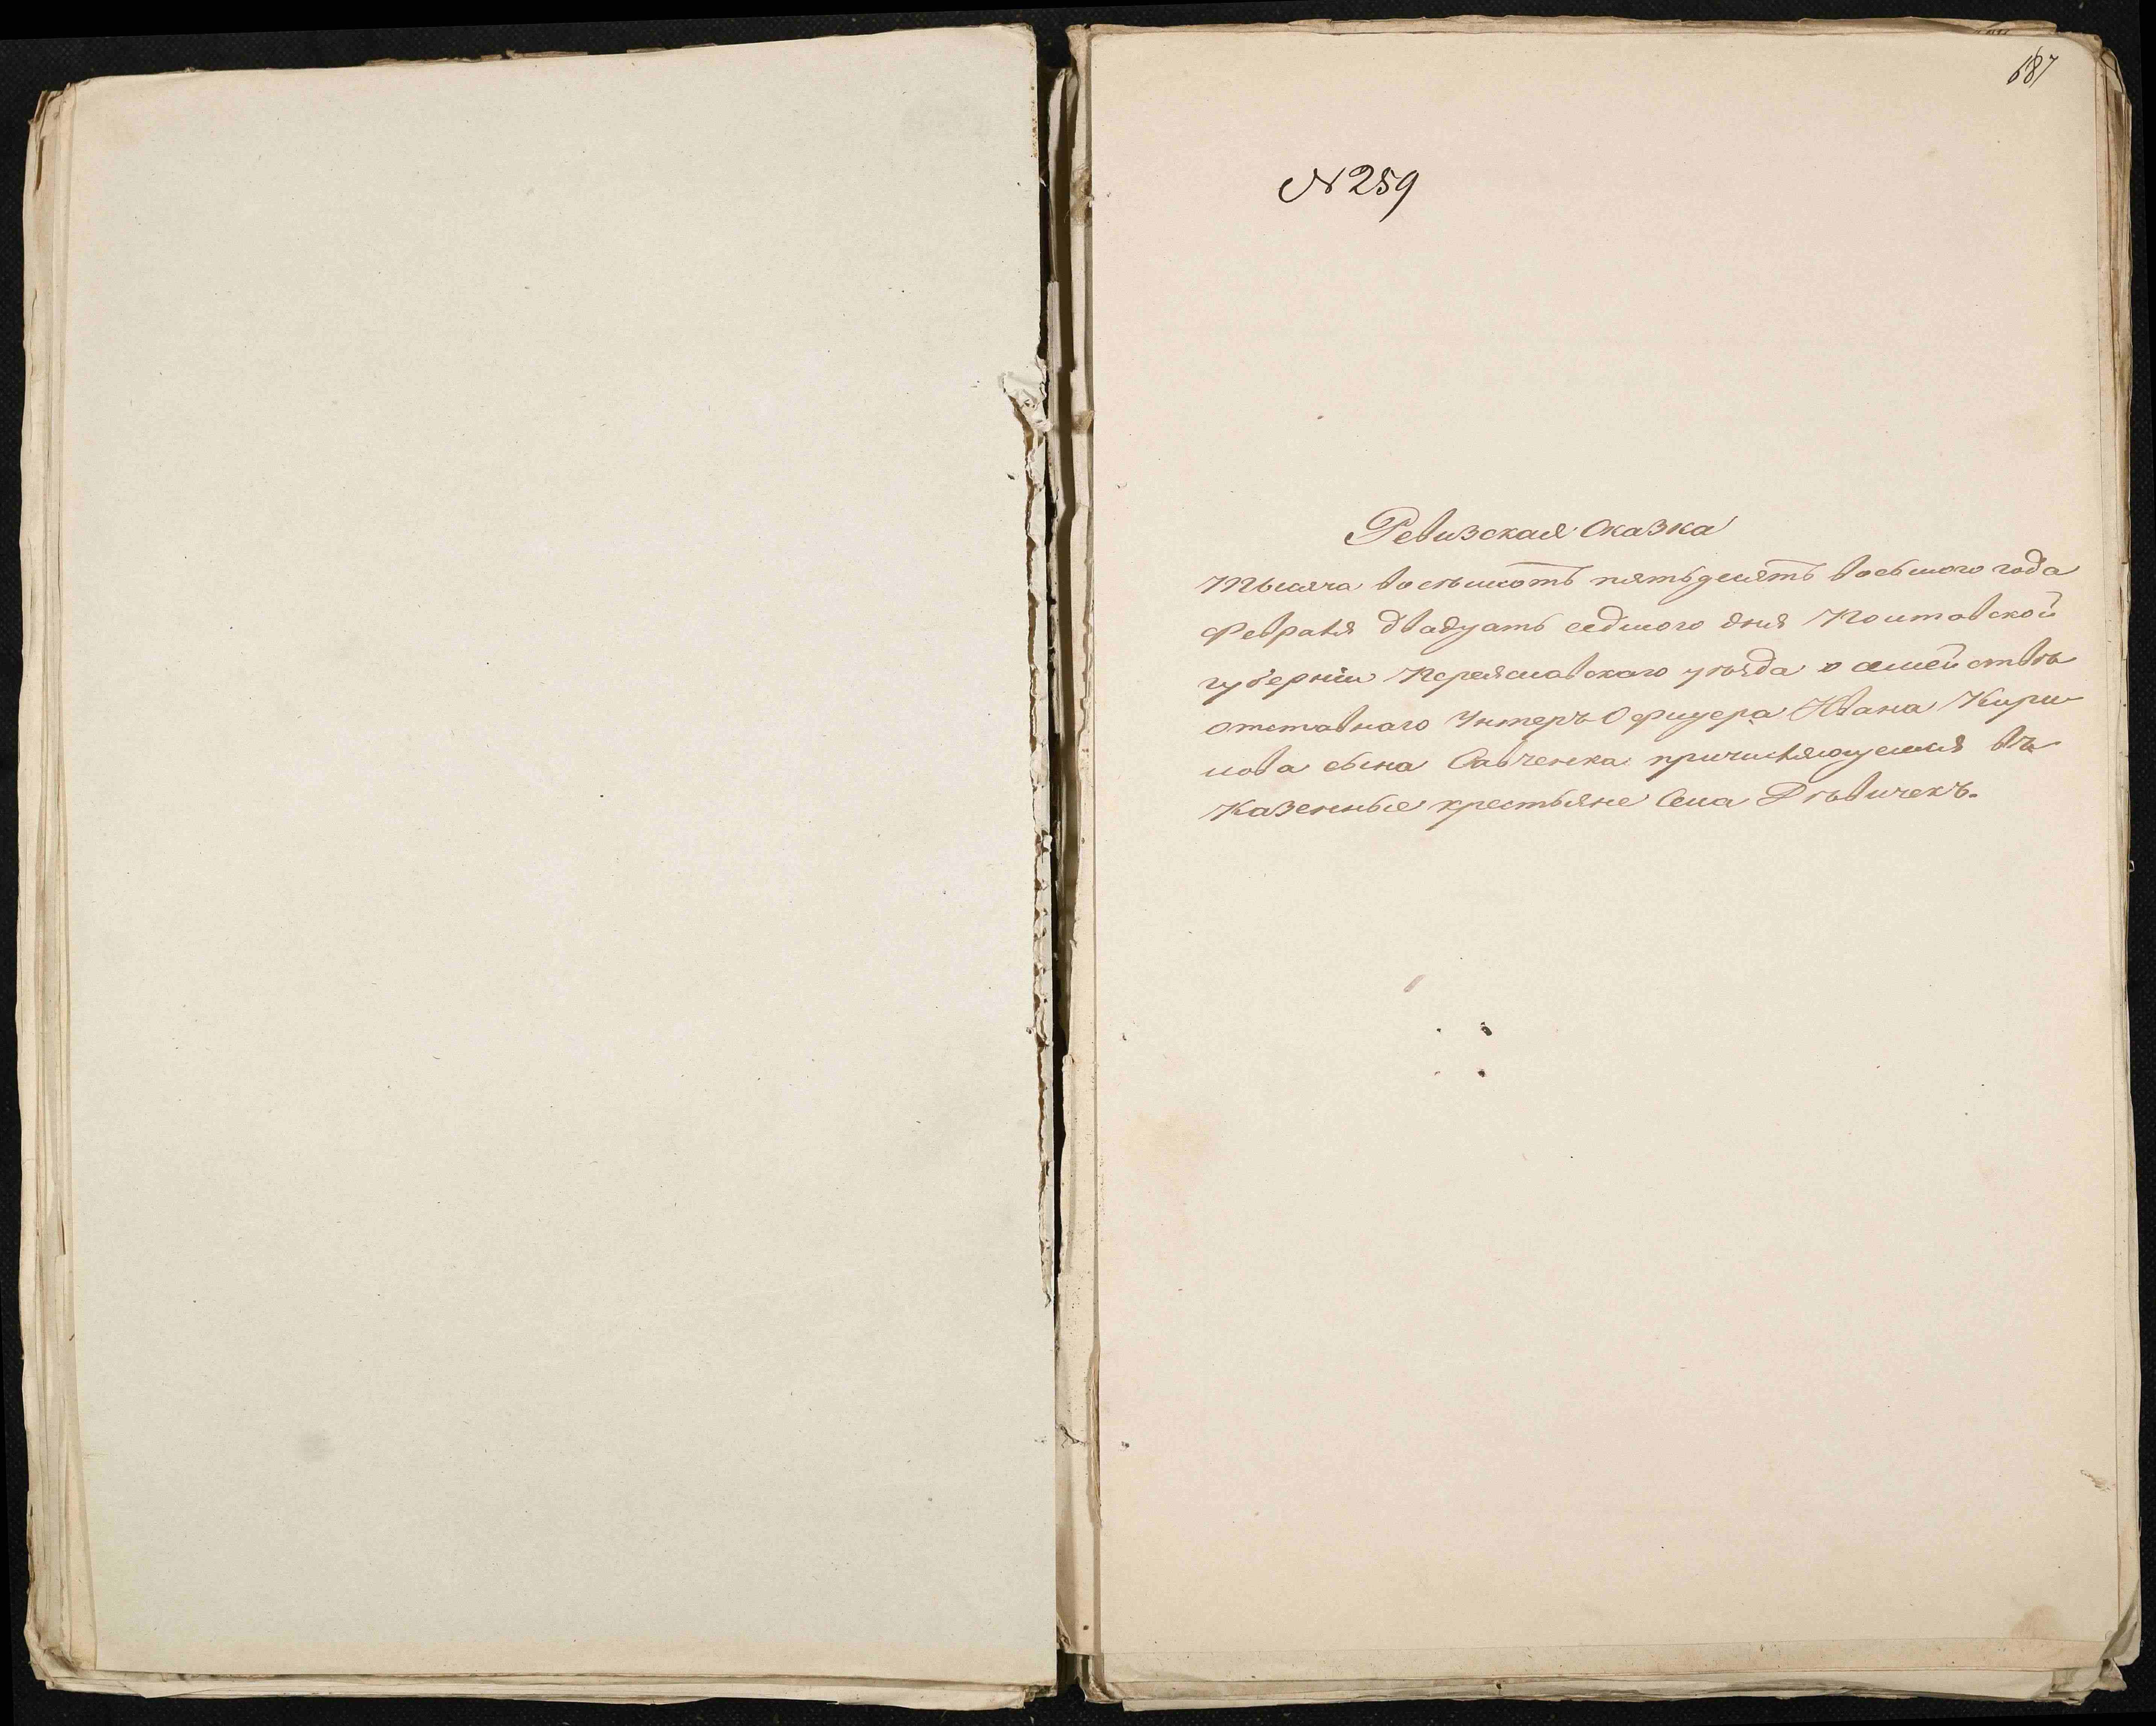 687
№ 259
Ревизская сказка
Тысяча восемьсотъ пятьдесятъ восьмого года
Февраля двадцать седмого дня Полтавской
губерніи Переяславскаго уѣзда о семействѣ
отставнаго Унтеръ Офицера Ивана Кири
лова сына Савченка причисляющемся въ
Казенные крестьяне Села Дѣвичекъ.